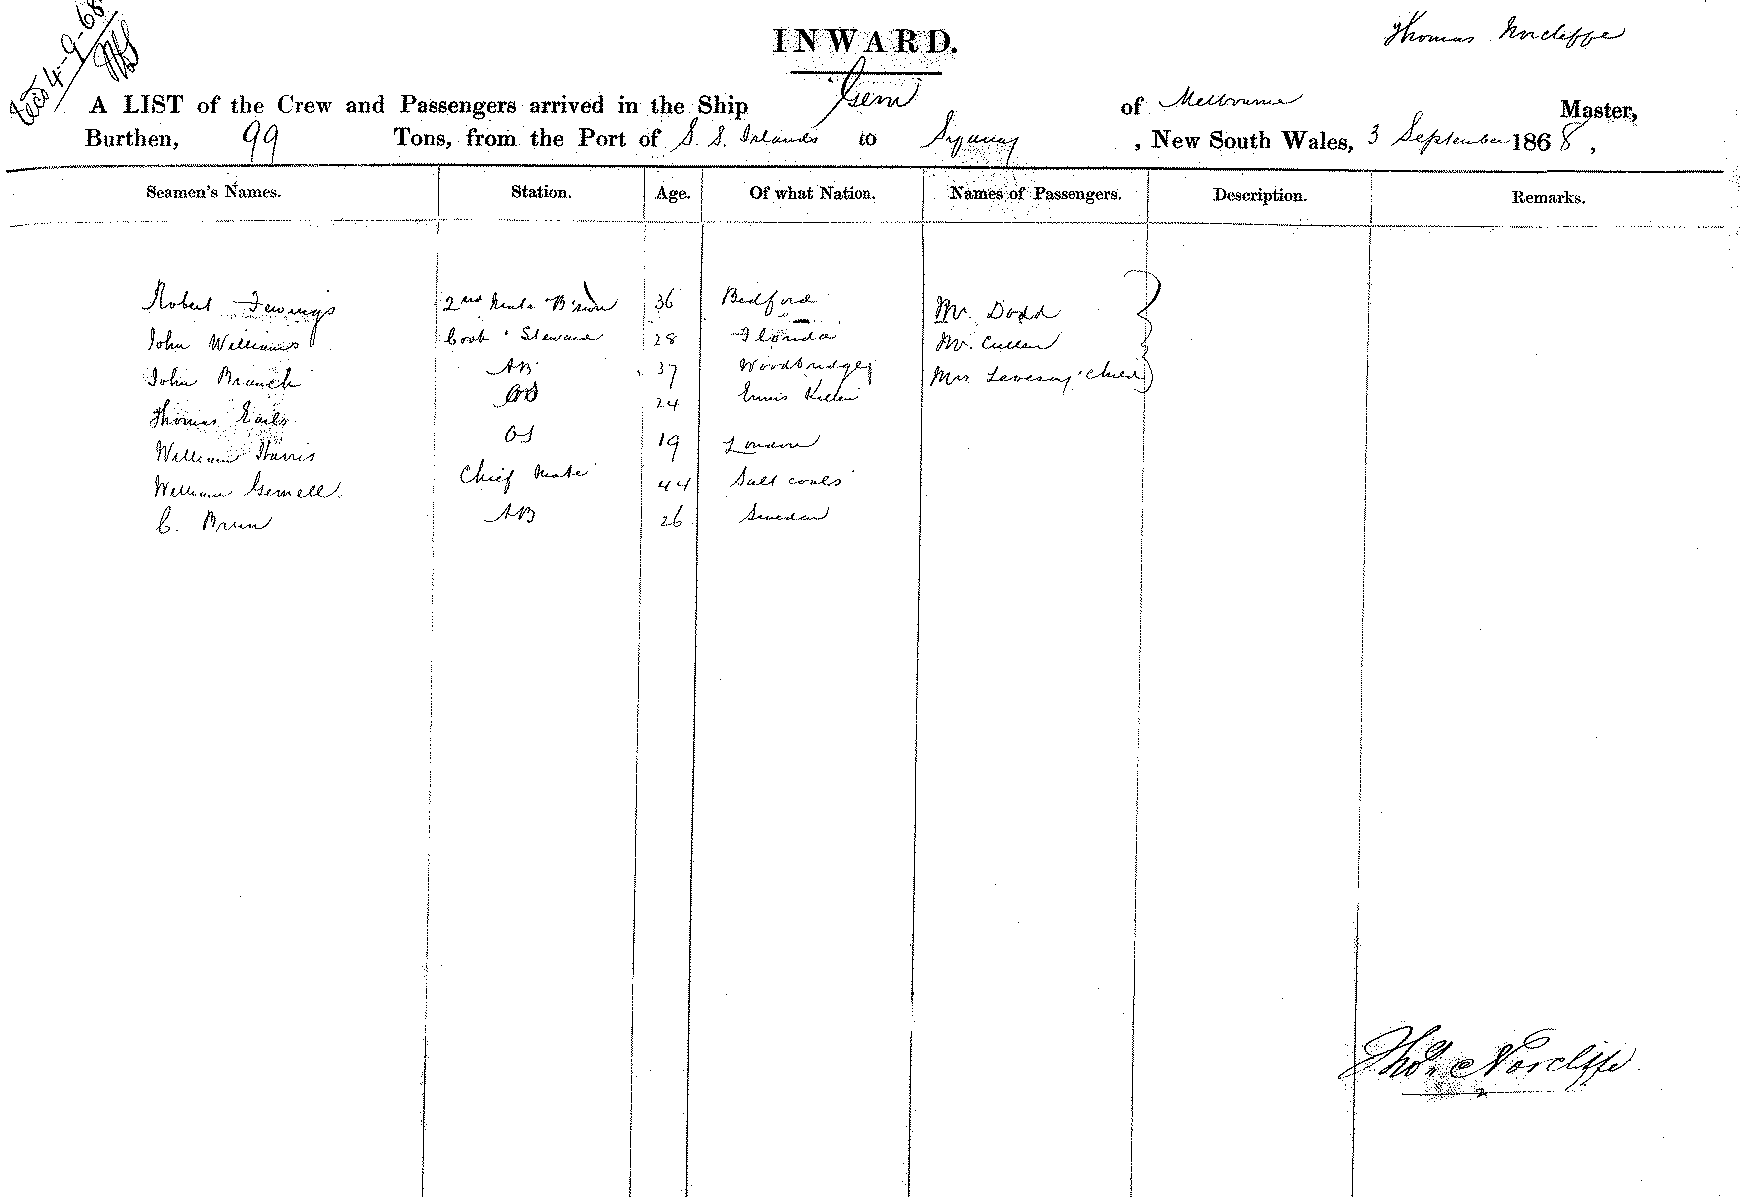 4-9-68
INWARD.
Thomas Norcliffe
A LIST of the Crew and Passengers arrived in the Ship Gem of Melbourne Master,
Burthen, 99 Tons, from the Port of S. S. Islands to Sydney, New South Wales, 3 September 1868,
Seamen's Names. Station. Age. Of what Nation. Names of Passengers. Description. Remarks.
Robert Fewings 2nd Mate 36 Bedford Mr. Dodd
John Williams Cook Steward 28 Florida Mr. Cullen
John Branch AB 37 Woodbridge Mrs Child
Thomas Earls 24
William Harris OS 19 London
William Gemell Chief Mate 44 Salt coats
C. Brun AB 26 Sweden
Thos. Norcliffe